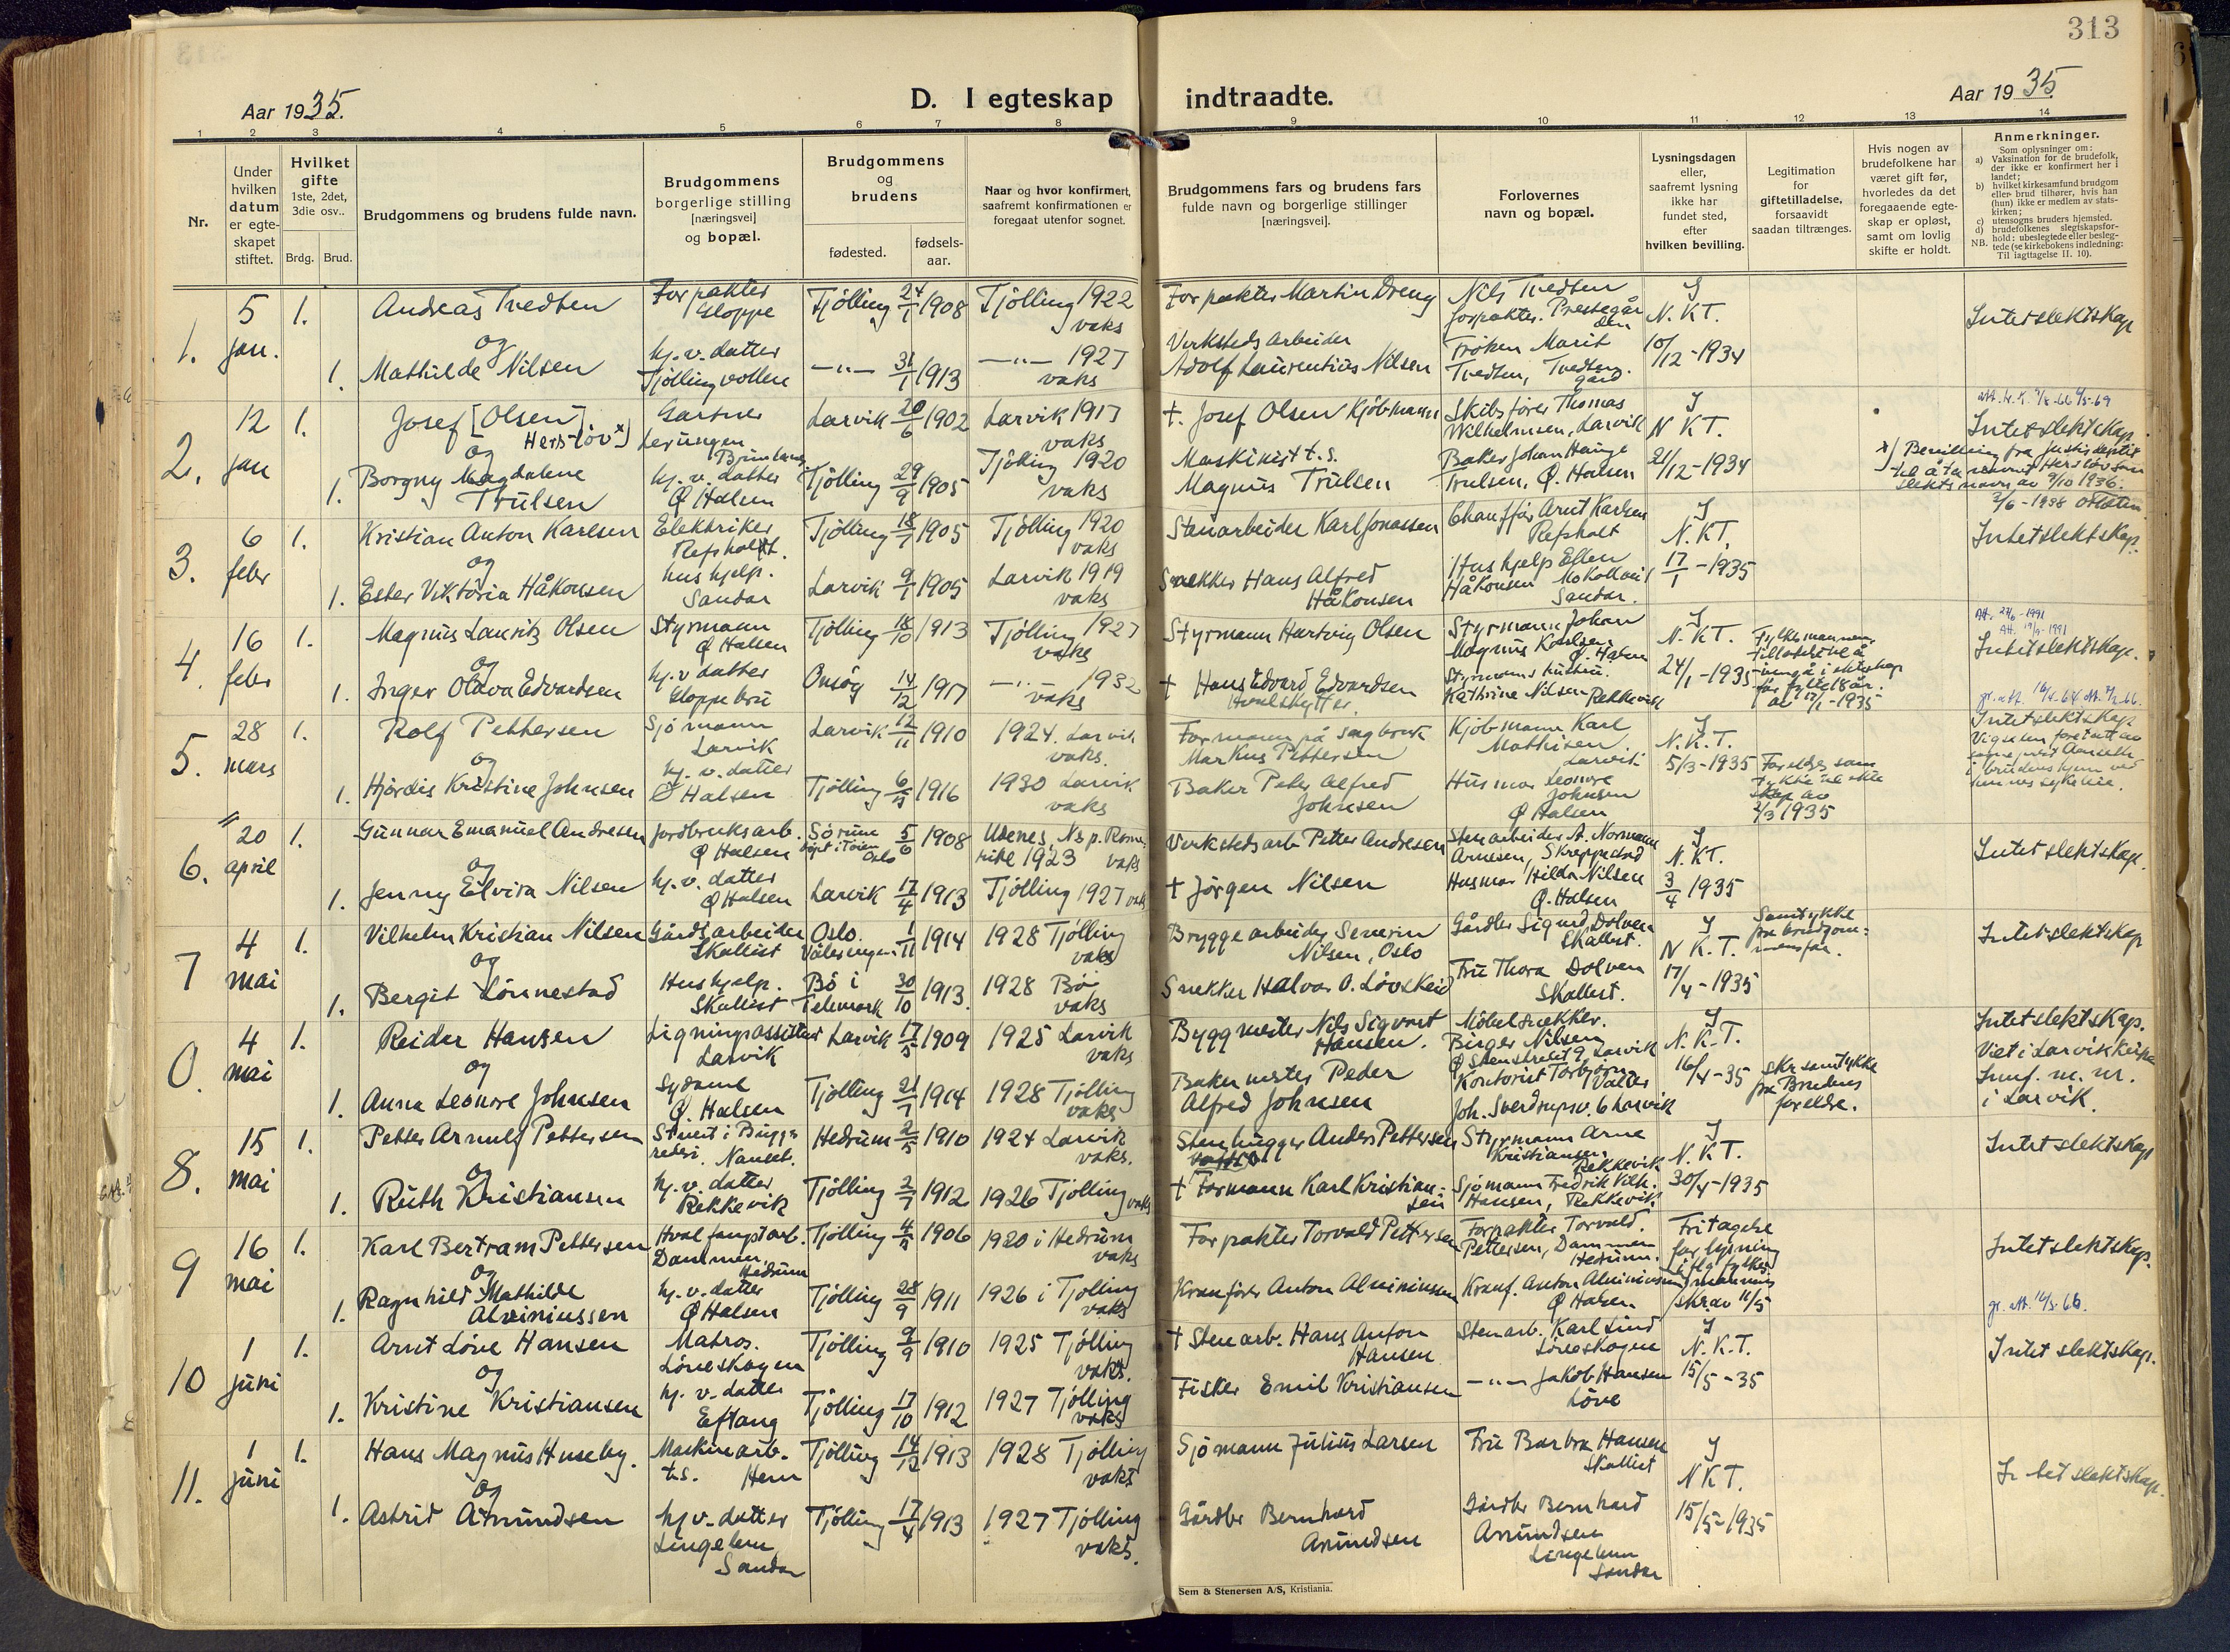 313
Aar 1935.
D. I egteskap indtraadte.
Aar 1935.
1 2 3 4 5 6 7 8 9 10 11 12 13 14
Nr.
Under
hvilken
datum
er egte-
skapet
stiftet.
Hvilket
gifte
1ste, 2det,
3die osv..
Brdg. Brud.
Brudgommens og brudens fulde navn.
Brudgommens
borgerlige stilling
[næringsvei]
og bopæl.
Brudgommens
og
brudens
fødested.
fødsels-
aar.
Naar og hvor konfirmert,
saafremt konfirmationen er
foregaat utenfor sognet.
Brudgommens fars og brudens fars
fulde navn og borgerlige stillinger
[næringsvei].
Forlovernes
navn og bopæl.
Lysningsdagen
eller,
saafremt lysning
ikke har
fundet sted,
efter
hvilken bevilling.
Legitimation
for
giftetilladelse,
forsaavidt
saadan tiltrænges.
Hvis nogen av
brudefolkene har
været gift før,
hvorledes da det
foregaaende egte-
skap er opløst,
samt om lovlig
skifte er holdt.
Anmerkninger.
Som oplysninger om:
a) Vaksination for de brudefolk,
der ikke er konfirmert her i
landet;
b) hvilket kirkesamfund brudgom
eller brud tilhører, hvis han
(hun) ikke er medlem av stats-
kirken;
c) utensogns bruders hjemsted.
d) brudefolkenes slegtskapsfor-
hold: ubeslegtede eller besleg-
tede (se kirkebokens indledning:
NB. Til iagttagelse II. 10).
1.
5 jan.
1. Andreas Tvedten
og
1. Mathilde Nilsen
Forpakter
Gloppe
hj.v. datter
Tjøllingvollen
Tjølling 24/1 1908
—„— 31/1 1913
Tjølling 1922
vaks
—„— 1927
vaks
Forpakter Martin Dreng
Verkstedsarbeider
Adolf Laurentius Nilsen
Nils Tvedten
forpakter. Prestegår
den
Frøken Marit
Tvedten, Tvedten
gård
I
N.K.T.
10/12-1934
Intet slektskap
2.
12 jan
1. Josef [Olsen]
Hersløv x)
og
1. Borgny Magdalene
Trulsen
Gartner
hj.v. datter
Ø Halsen
Larvik 20/6 1902
Tjølling 29/9 1905
Larvik 1917
vaks
Tjølling 1920
vaks
+. Josef Olsen Kjøbmann
Maskinist t.s.
Magnus Trulsen
Skibsfører Thomas
Wilhelmsen, Larvik
Baker Johan Hauge
Trulsen, Ø. Halsen
I
N K T.
21/12-1934
Intet slektskap
x) Bevilling fra justisdeptet
til å ta navnet Hersløv som
slektsnavn av 9/10 1936.
3.
6 febr
1. Kristian Anton Karlsen
og
1. Ester Viktoria Håkonsen
Elektriker
Refsholt.
hushjelp.
Sandar
Tjølling 18/7 1905
Larvik 9/1 1905
Tjølling 1920
vaks
Larvik 1919
vaks
Stenarbeider Karl Jonassen
Snekker Hans Alfred
Håkonsen
Chauffør Arnt Karlsen
Refsholt
Hushjelp Ellen
Håkonsen
Sandar.
I
N.K.T.
17/1-1935
Intet slektskap.
4.
16 febr
1. Magnus Lauritz Olsen
og
1. Inger Olava Edvardsen
Styrmann
Ø Halsen
hj.v datter
Gloppe bru
Tjølling 18/10 1913
Onsøy 14/12 1917
Tjølling 1927
vaks
—„— 1932
vaks
Styrmann Hartvig Olsen
+ Hans Edvard Edvardsen
Hvalskytter.
Styrmann Johan
Magnus Karlsen
Ø. Halsen
Kathrine Nilsen Rekkevik
I
N.K.T.
24/1-1935
Fylkesmannens
tillatelse til å
inngå i ekteskap
før fylte 18 år.
av 17/1-1935
Intet slektskap.
5.
28 mars
1. Rolf Pettersen
og
1. Hjørdis Kristine Johnsen
Sjømann
Larvik
hj.v. datter
Ø Halsen
Larvik 12/11 1910
Tjølling 1916
1924. Larvik
vaks.
1930 Larvik
vaks
Formann på sagbruk
Markus Pettersen
Baker Peder Alfred
Johnsen
Kjøbmann Karl
Mathisen.
Larvik
Husmor Leonore
Johnsen
Ø Halsen
I
N.K.T.
5/3-1935
2/3 1935
Intet slektskap
6.
20 april
1. Gunnar Emanuel Andresen
og
1. Jenny Elvira Nilsen
jordbruksarb.
Ø Halsen
hj.v. datter
Ø Halsen
Sørum
døpt i Tøien
Oslo
5/6 1908
Larvik 17/4 1913
Udenes, Ns p. Rome-
rike 1923 vaks
Tjølling 1927 vaks
Verkstedsarb Petter Andresen
+ Jørgen Nilsen
Stenarbeider A. Normann
Arnesen, Skreppestad
Husmor Hilda Nilsen
Ø. Halsen
I
N.K.T.
3/4 1935
Intet slektskap.
7
4 mai
1. Vilhelm Kristian Nilsen
og
1. Bergit Lønnestad
Gårdsarbeider
Skallist
Hushjelp.
Skallist
Oslo
Vålerengen 1/11 1914
Bø i
Telemark 30/10 1913
1928 Tjølling
vaks
1928 Bø
vaks
Bryggearbeider Severin
Nilsen, Oslo
Snekker Halvor O. Løvskeid
Gårdbr Sigurd Dolven
Skallist.
Fru Thora Dolven
Skallist.
I
N K. T.
17/4-1935
Samtykke
fra brudgom-
mens far.
Intet slektskap
0.
4 mai
1. Reidar Hansen
og
1. Anna Leonore Johnsen
Ligningsassistent
Larvik
Sydame
Ø. Halsen
Larvik 17/5 1909
Tjølling 21/7 1914
1925 Larvik
vaks
1928 Tjølling
vaks
Byggmester Nils Sigvart
Hansen.
Bakermester Peder
Alfred Johnsen
Møbelsnekker.
Birger Nilsen
Larvik
Kontorist Torbjørn
Joh. Sverdrupsv. 6 Larvik
I
N.K.T.
16/4-35
Skr samtykke
fra Brudens
foreldre.
Intet slektskap.
Viet i Larvik kirke
i Larvik.
8.
15 mai
1. Petter Arnulf Pettersen
og
1. Ruth Kristiansen
Stuert i Bugge
rederi. Nanset.
hj.v. datter
Rekkevik
Hedrum 2/5 1910
Tjølling 2/7 1912
1924 Larvik
vaks.
1926 Tjølling vaks
Stenhugger Anders Pettersen
+ Formann Karl Kristian-
sen
Styrmann Arne
Kristiansen
Rekkevik
Sjømann Fredrik Vilh.
Hansen, Rekkevik
I
N.K.T.
30/4-1935
Intet slektskap
9
16 mai
1. Karl Bertram Pettersen
og
1. Ragnhild Mathilde
Alviniussen
Hvalfangstarb.
Dammen
Hedrum
hj.v. datter
Ø Halsen
Tjølling 1906
Tjølling 28/9 1911
1920 i Hedrum
vaks
1926 i Tjølling
vaks
Forpakter Torvald Pettersen
Kranfører Anton Alviniussen
Forpakter Torvald.
Pettersen, Dammen
Hedrum.
Kranf. Anton Alviniussen
Ø Halsen
Fritagelse
for lysning
iflg fylkes-
mannens
skr. av 11/5
Intet slektskap.
10
1 juni
1. Arnt Løve Hansen
og
1. Kristine Kristiansen
Matros.
Løveskogen
hj.v. datter
Eftang
Tjølling 9/9 1910
Tjølling 17/10 1912
1925 Tjølling
vaks.
1927 Tjølling
vaks
+ Stenarb. Hans Anton
Hansen
Fisker Emil Kristiansen
Stenarb. Karl Lind
Løveskogen
—„— Jakob Hansen
Løve
I
N.K.T.
15/5-35
Intet slektskap.
11.
1 juni
1. Hans Magnus Huseby.
og
1. Astrid Amundsen
Maskinarb.
t.s. Hem
hj v. datter
Lingelem
Sandar
Tjølling 14/12 1913
Tjølling 17/4 1913
1928 Tjølling
vaks
1927 Tjølling
vaks.
Sjømann Julius Larsen
Gårdbr Bernhard
Amundsen
Fru Barbra Hansen
Skallist
Gårdbr Bernhard
Amundsen
Lingelem
Sandar
I
N K T.
15/5-1935
Intet slektskap.
Sem & Stenersen A/S, Kristiania.